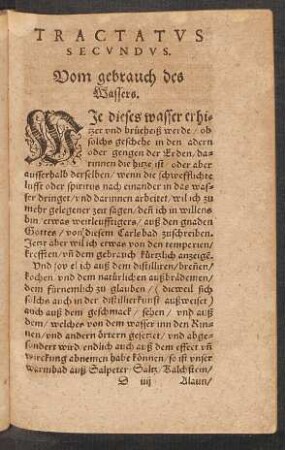 TRACTATVS
SECVNDVS.
Vom gebrauch des
Wassers.
WJe dieses wasser erhi-
zet vnd brüeheiß werde / ob
solchs geschehe in den adern
oder gengen der Erden, da-
rinnen die hitze ist oder aber
ausserhalb derselben / wenn die schwefflichte
lufft oder spiritus nach einander in das was-
ser dringet / vnd darinnen arbeitet / wil ich zu
mehr gelegener zeit sagen / deñ ich in willens
bin / etwas weitleufftigers / auß den gnaden
Gottes / von diesem Carlsbad zuschreiben.
Jetzt aber wil ich etwas von den temperien /
krefften / vñ dem gebrauch kürtzlich anzeigẽ.
Vnd so viel ich auß dem distilliren / breñen /
kochen vnd dem natürlichen außbrädemen /
dem fürnemlich zu glauben / (dieweil sich
solchs auch in der distillierkunst außweiset)
auch auß dem geschmack / sehen / vnd auß
dem / welches von dem wasser inn den Rin-
nen / vnd andern örtern gesetzet / vnd abge-
sondert wird / endlich auch auß dem effect vñ
wirckung abnemen habe können / so ist vnser
warmbad auß Salpeter / Saltz / Kalchstein /
D iij Alaun /